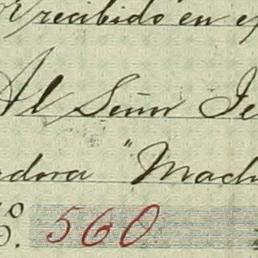 recibido en ef
Al Señor Je
dora "Mach
No. 560